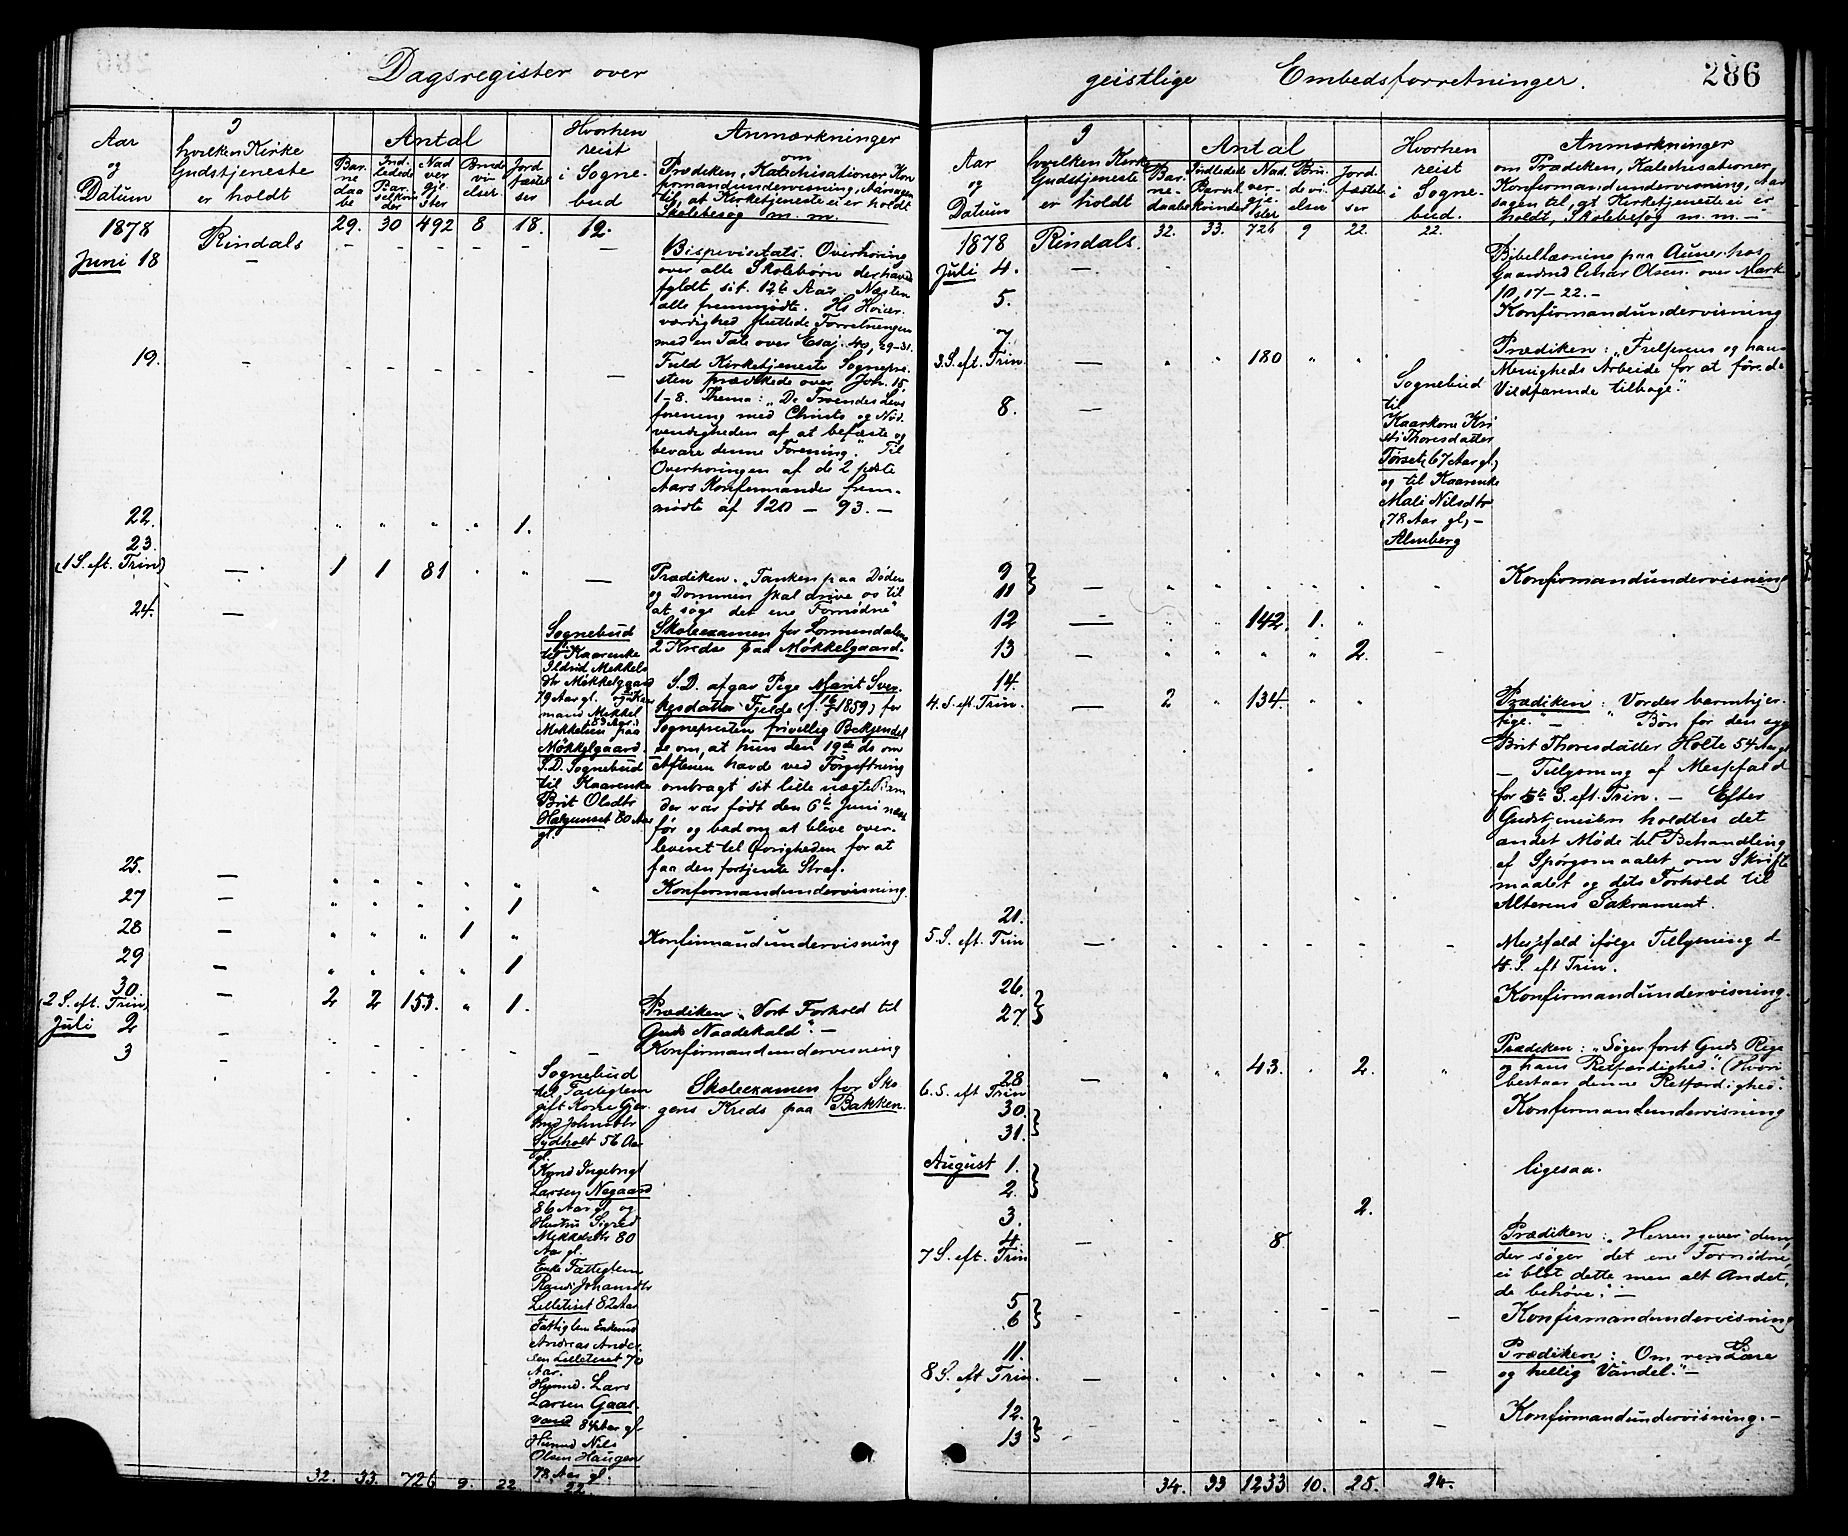 Dagsregister over
Aar
og
Datum
I
hvilken Kirke
Gudstjeneste
er holdt
Antal
Bar-
ne
daa
be
Ind-
ledede
Bar-
selkvin
der
Nad
ver
gje-
ster
Brude
vi-
elser
Jord
fæstel
ser
Hvorhen
reist
i Sogne-
bud
Anmærkninger
om
Prædiken, Katechisationer Kon
firmandundervisning, Aarsagen
til, at Kirketjeneste ei er holdt
Skolebesøg m. m.
1878 Rindals 29. 30 492 8 18. 12.
Juni 18 —
Bispevisitats. Overhøring
over alle Skolebørn der havde
fyldt sit 12te Aar. Næsten
alle fremmødte. Hs Høiær-
værdighed sluttede Forretningen
med en Tale over Esaj. 40, 29-31.
19. —
Fuld Kirketjeneste Sognepre-
sten prædikede over Joh. 15,
1-8. Thema: „De Troendes Livs
forening med Christo og Nød-
vendigheden af at befæste og
bevare denne Forening." Til
Overhøringen af de 2 sidste
Aars Konfirmander frem-
mødte af 120 — 93. —
22. " " " " 1.
23.
(1 S. eft. Trin) — 1 1 81 " " —
Prædiken. „Tanken paa Døden
og Dommen skal drive os til
at søge det ene Fornødne"
24. —
Sognebud
til Kaarenke
Ildrid Mekkels
dtr Møkkelgaard
79 Aar gl. og Kaar
mand Mekkel
Mekkelsen paa
Møkkelgaard.
S.D. Sognebud
til Kaarenke
Brit Olsdtr
Halgunset 80 Aar
gl.
Skoleexamen for Lomundalens
2 Kredse paa Møkkelgaard.
S.D. afgav Pige Marit Sver-
kesdatter Fjelde (f. 1859) for
Sognepresten frivillig Bekjendel
se om, at hun den 19de ds om
Aftenen havde ved Forgiftning
ombragt sit lille uægte Barn
der var født den 6te Juni næst
før og bad om at blive over-
leveret til Øvrigheden for at
faa den fortjente Straf.
25. — " " " " " "
Konfirmandundervisning.
27 — " " " " 1
28 — " " " 1 "
Konfirmandundervisning
29 — " " " " 1
30.
(2 S. eft. Trin) — 2 2 153. " 1.
Prædiken: „Vort Forhold til
Guds Naadekald". —
Juli 2 —
Konfirmandundervisning
3 —
Sognebud
til Fattiglem
gift Kone Gjer-
trud Johnsdtr
Sydholt 56 Aar
gl.
Kmd Ingebrigt
Larsen Negaard
86 Aar gl. og
Hustru Sigrid
Mekkelsdtr 80
Aar gl.
Enke Fattiglem
Randi Johansdtr
Lilletiset 82 Aar
Fattiglem Enkemd
Andreas Ander-
sen Lilleteset 70
Aar.
Husmd. Lars
Larsen Gaas-
vand 84 Aar gl.
Husmd Nils
Olsen Haugen
78 Aar gl.
Skoleexamen for Sko
gens Kreds paa Bakken.
32. 33. 726 9. 22. 22.
geistlige Embedsforretninger.
286
Aar
og
Datum
I
hvilken Kirke
Gudstjeneste
er holdt
Antal
Bar-
ne-
daabe
Indledede
Barsel
kvinder
Nad.
ver-
gje-
ster
Bru-
devi-
elser
Jord
fæstel
ser
Hvorhen
reist
i Sogne-
bud.
Anmærkninger
om Prædiken, Katechisationer,
Konfirmandundervisning, Aar
sagen til, at Kirketjeneste ei er
holdt, Skolebesøg m. m. —
1878 Rindals. 32. 33. 726 9 22. 22.
Juli 4. —
Bibellæsning paa Aune hos
Gaardmd Einar Olsen over Mark
10, 17-22. —
5.
Konfirmandundervisning
7
3 S. eft. Trin. — " " 180 " "
Prædiken: „Frelseren og hans
Menigheds Arbeide for at føre de
Vildfarende tilbage".
8. —
Sognebud
til
Kaarkone Kri
sti Thoresdatter
Torset (67 Aar gl.)
og til Kaarenke
Mali Nilsdtr
(78 Aar gl) —
Almberg
9
11 " " " " "
Konfirmandundervisning
12 — " " 142. 1. "
13 — " " " " 2.
14.
4. S. eft. Trin. — 2 " 134. " "
Prædiken: „Vorder barmhjer-
tige." — Bøn for den syge
Brit Thoresdatter Holte 54 Aar gl
— Tillysning af Messefald
for 5te S. eft. Trin. — Efter
Gudstjenesten holdtes det
andet Møde til Behandling
af Spørgsmaalet om Skrifte-
maalet og dets Forhold til
Alterens Sakrament.
21.
5. S. eft. Trin —
Messefald ifølge Tillysning d
4. S. eft Trin.
26.
27.
Konfirmandundervisning.
28
6. S. eft Trin — " " 43. " 2.
Prædiken: „Søger først Guds Rige
og hans Retfærdighed". (Hvori
bestaar denne Retfærdighed".
30.
31.
Konfirmandundervisning
August 1.
2.
ligesaa.
3. 2.
4.
7 S. eft. Trin — 8
Prædiken: „Herren giver dem,
der søger det ene Fornødne,
ei blot dette men alt Andet,
de behøve". —
5
6
Konfirmandundervisning
11.
8 S. eft Trin. —
Prædiken: „Om ren Lære
og hellig Vandel." —
12.
13
Konfirmandundervisning. —
34. 33 1233 10. 28. 24.